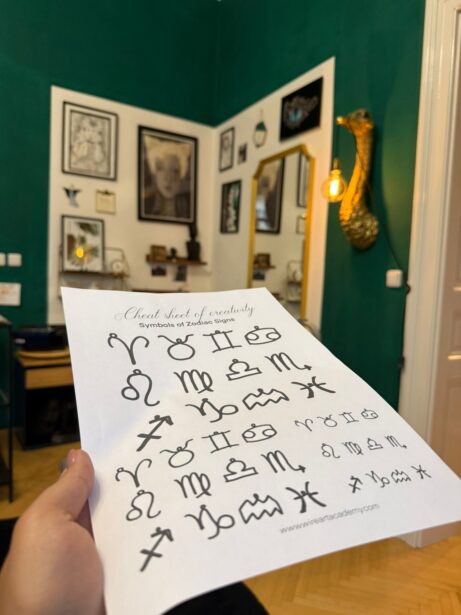 Cheat sheet of creativity
Symbols of Zodiac Signs
♈ ♉ ♊ ♋
♌ ♍ ♎ ♏
♐ ♑ ♒ ♓
♈ ♉ ♊ ♋
♌ ♍ ♎ ♏
♐ ♑ ♒ ♓
♈ ♉ ♊ ♋
♌ ♍ ♎ ♏
♐ ♑ ♒ ♓
www.wireartacademy.com